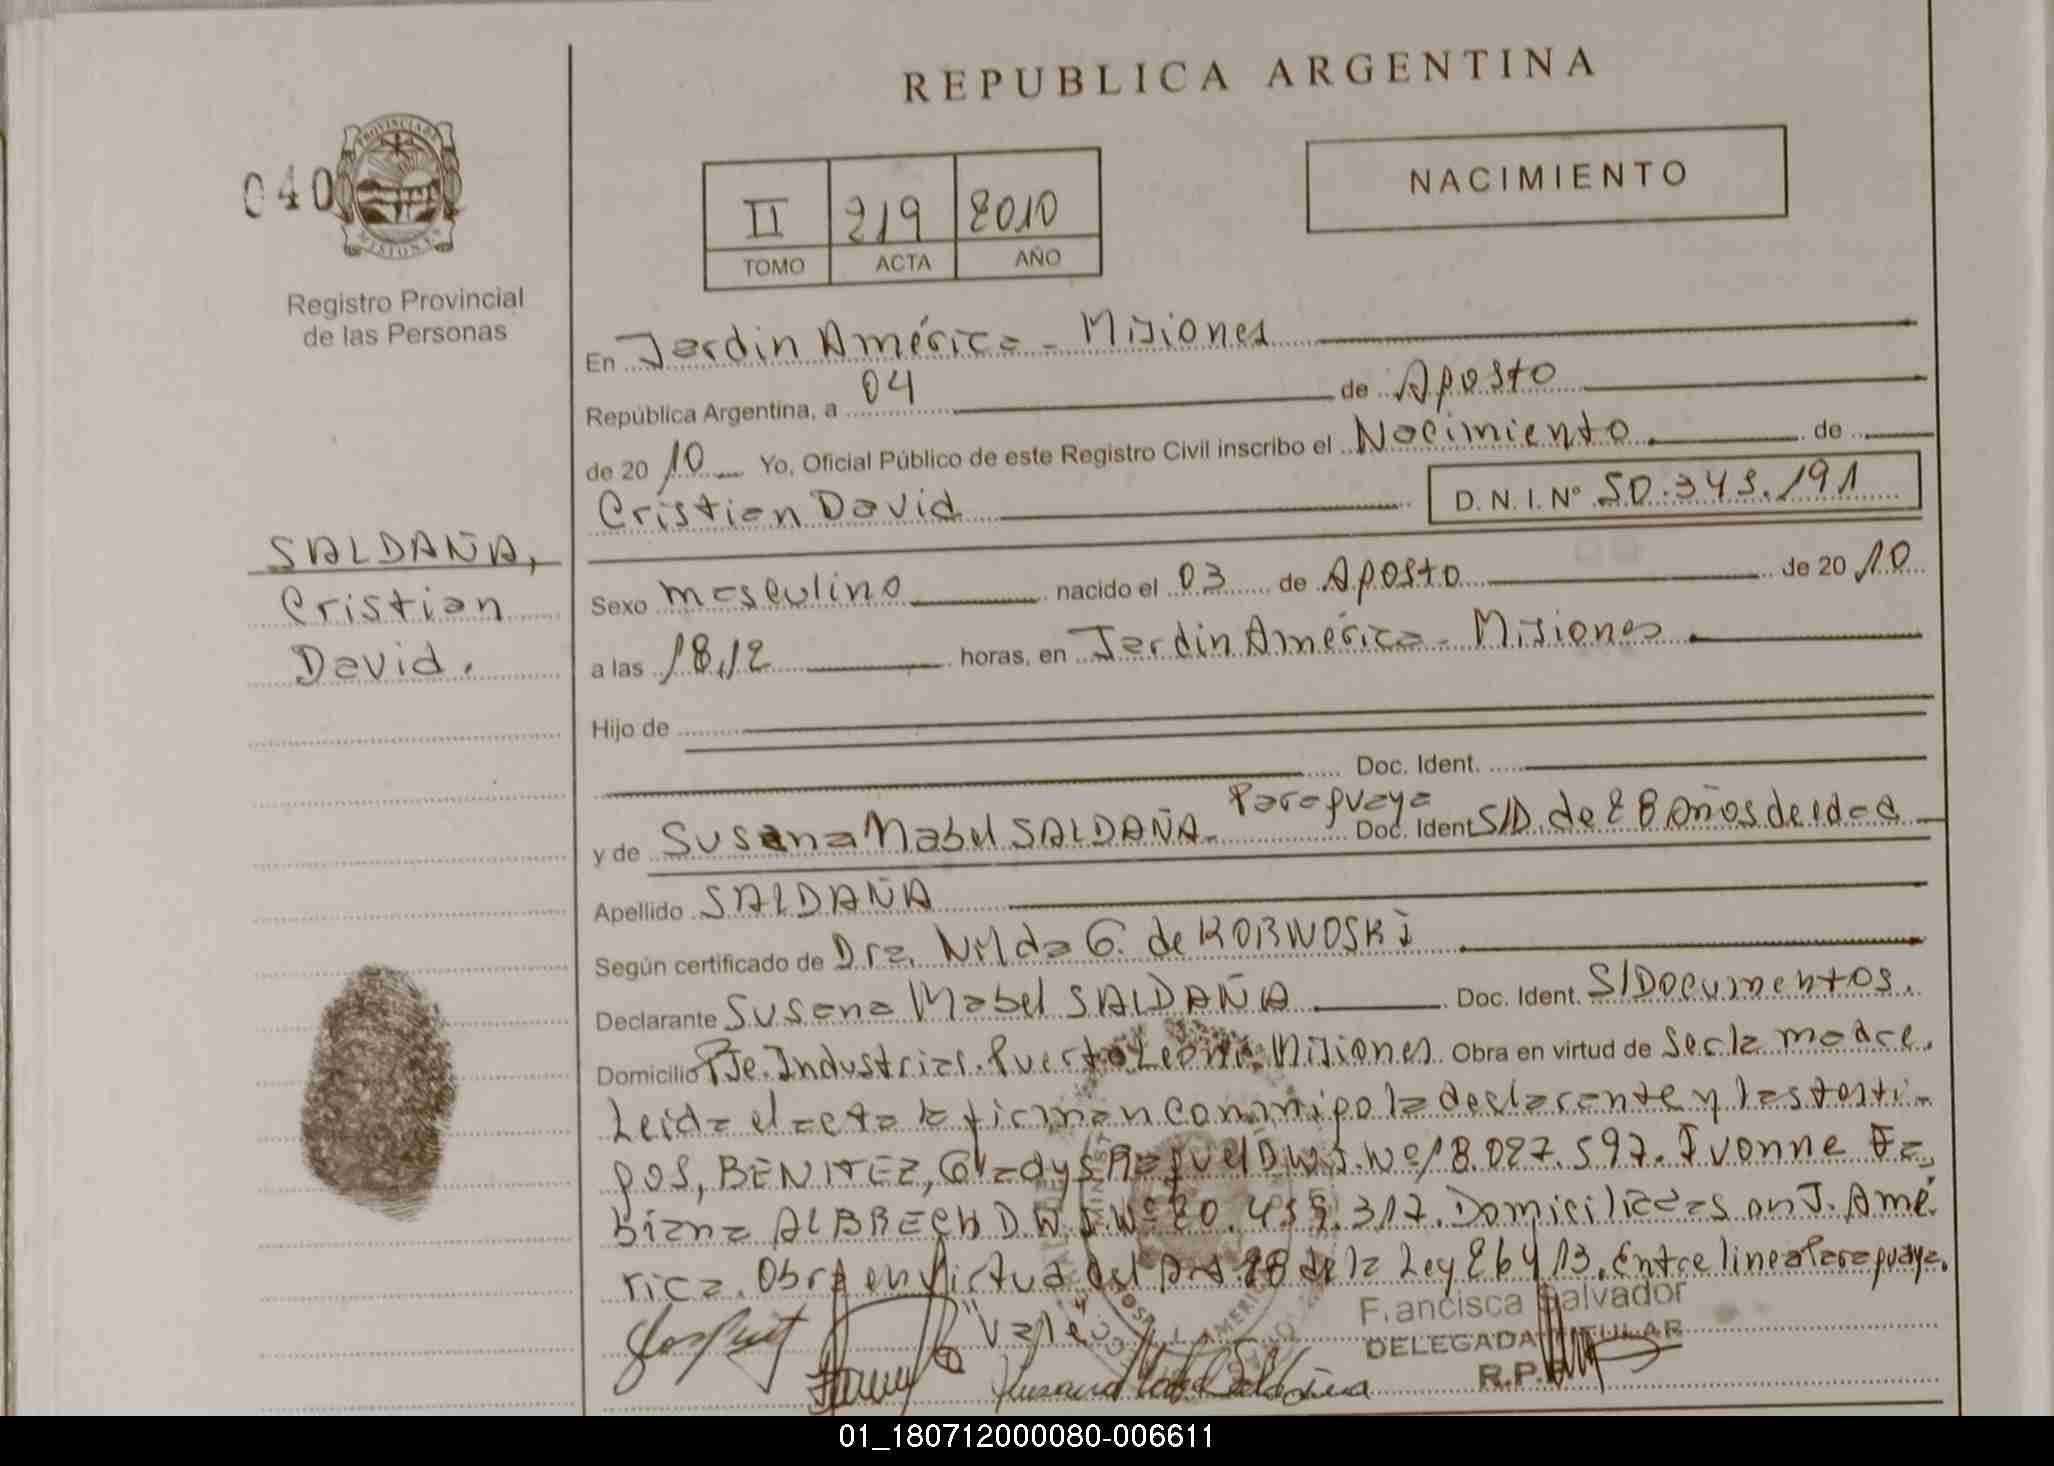 REPUBLICA ARGENTINA
040
PROVINCIA DE
MISIONES
Registro Provincial
de las Personas
NACIMIENTO
II 219 2010
TOMO ACTA AÑO
En Jardin América - Misiones
República Argentina, a 04 de Agosto
de 20 10 Yo, Oficial Público de este Registro Civil inscribo el Nacimiento de
Cristian David D. N. I. Nº 50.343.191
SALDAÑA,
Cristian
David.
Sexo masculino nacido el 03 de Agosto de 20 10
a las 18,12 horas, en Jardin América - Misiones
Hijo de
Doc. Ident.
Paraguaya
y de Susana Mabel SALDAÑA Doc. Ident S/D. de 28 Años de edad
Apellido SALDAÑA
Según certificado de Dra. Nilda G. de KORWOSKI
Declarante Susana Mabel SALDAÑA Doc. Ident. S/Documentos.
Domicilio Pje. Industrias. Puerto Leoni. Misiones Obra en virtud de Ser la madre.
Leida el acta la firman conmigo la declarante y las testi-
gos, BENITEZ, Gladys Raquel D.N.I. Nº 18.027.597. Ivonne Fa,
biana ALBRECH D.N.I. Nº 20. .317. Domiciliadas en J. Amé.
rica. Obra en virtud del Art. 28 de la Ley 26413. Entre linea Paraguaya.
"Vale"
Susana Mabel Saldaña
F.ancisca Salvador
DELEGADA TITULAR
R.P.
01_180712000080-006611